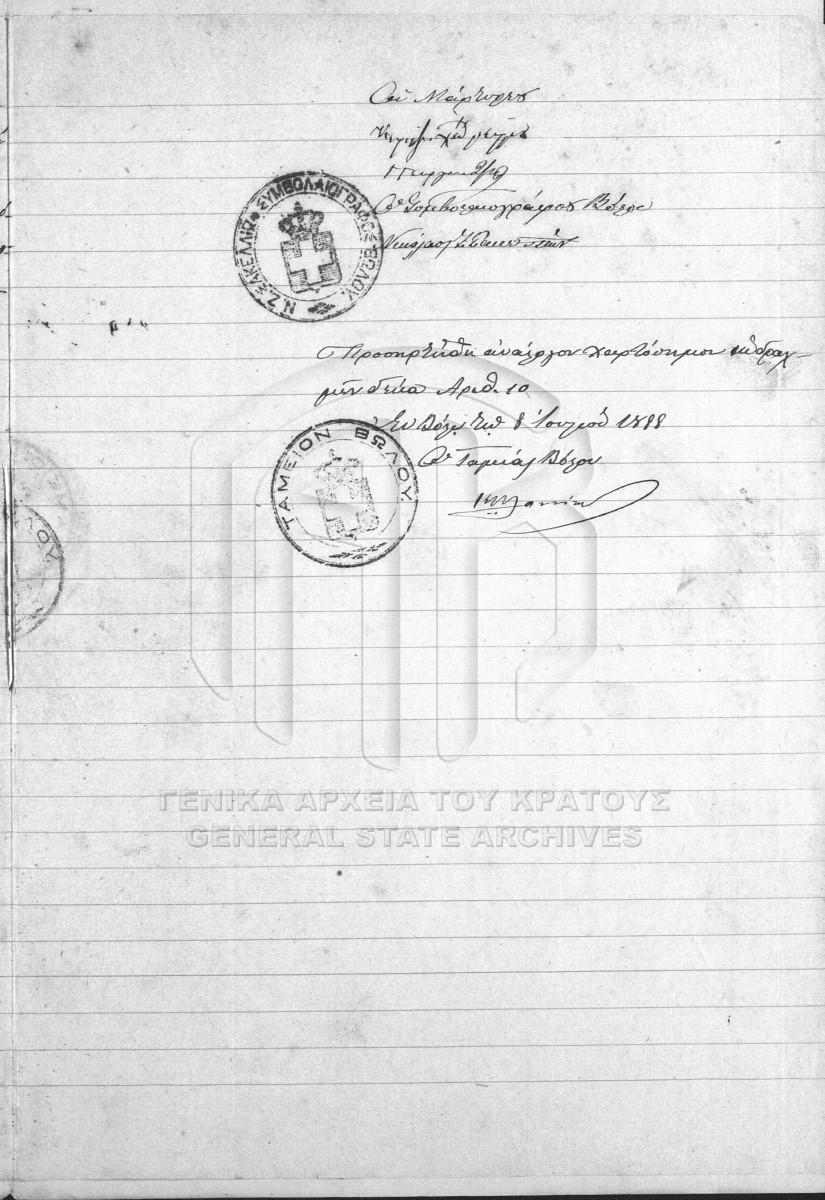 Οἱ Μάρτυρες
Ὁ Συμβολαιογράφος Βόλου
Νικόλαος Ζ.
Ν. Ζ. ΣΑΚΕΛΛΙΩΝ ΣΥΜΒΟΛΑΙΟΓΡΑΦΟΣ ΒΩΛΟΥ
Προσηρτήθη ἀνάλογον χαρτόσημον ἐκ δραχ-
μῶν δέκα Ἀριθ. 10
Ἐν Βόλῳ τῇ 8 Ἰουνίου 1888
Ὁ Ταμίας Βόλου
ΤΑΜΕΙΟΝ ΒΩΛΟΥ
ΓΕΝΙΚΑ ΑΡΧΕΙΑ ΤΟΥ ΚΡΑΤΟΥΣ
GENERAL STATE ARCHIVES